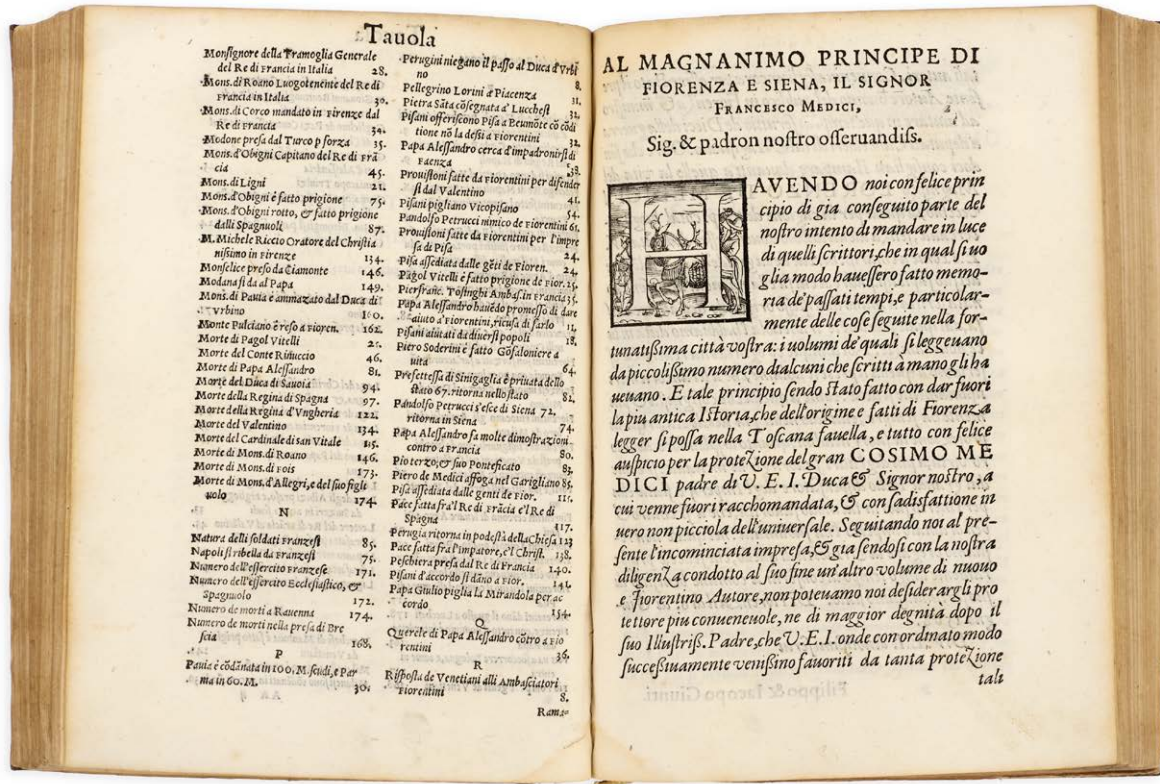 Tauola
Monsignore della Tramoglia Generale
del Re di Francia in Italia 28.
Mons. di Roano Luogotenente del Re di
Francia in Italia 30.
Mons. di Corco mandato in Firenze dal
Re di Francia 34.
Modone presa dal Turco p forza 35.
Mons. d'Obigni Capitano del Re di Frã
cia 45.
Mons. di Ligni 21.
Mons. d'Obigni è fatto prigione 75.
Mons. d'Obigni rotto, & fatto prigione
dalli Spagnuoli 87.
M. Michele Riccio Oratore del Christia
nissimo in Firenze 134.
Monselice preso da Ciamonte 146.
Modana si dà al Papa 149.
Mons. di Pauia è ammazato dal Duca di
Vrbino 160.
Monte Pulciano è reso a Fioren. 162.
Morte di Pagol Vitelli 25.
Morte del Conte Rinuccio 46.
Morte di Papa Alessandro 81.
Morte del Duca di Sauoia 94.
Morte della Regina di Spagna 97.
Morte della Regina d'Vngheria 122.
Morte del Valentino 134.
Morte del Cardinale di san Vitale
Morte di Mons. di Roano 146.
Morte di Mons. di Fois 173.
Morte di Mons. d'Allegri, e del suo figli
uolo 174.
N
Natura delli soldati Franzesi 85.
Napoli si ribella da Franzesi 75.
Numero dell'essercito Franzese 171.
Numero dell'essercito Ecclesiastico, &
Spagnuolo 172.
Numero de morti a Rauenna 174.
Numero de morti nella presa di Bre
scia 168.
P
Pauia è cõdãnata in 100. M. scudi, e Par
ma in 60. M. 30.
Perugini niegano il passo al Duca d'Vrbi
no 8.
Pellegrino Lorini a Piacenza 31.
Pietra Sãta cõsegnata a' Lucchesi 32.
Pisani offeriscono Pisa a Beumõte cõ cõdi
tione nõ la dessi a Fiorentini 32.
Papa Alessandro cerca d'impadronirsi di
Faenza 38.
Prouisioni fatte da Fiorentini per difender
si dal Valentino 41.
Pisani pigliano Vicopisano 54.
Pandolfo Petrucci nimico de Fiorentini 61.
Prouisioni fatte da Fiorentini per l'impre
sa di Pisa 24.
Pisa assediata dalle gẽti de Fioren. 24.
Pagol Vitelli è fatto prigione de Fior. 25.
Pierfranc. Tosinghi Ambas. in Francia 35.
Papa Alessandro hauẽdo promesso di dare
aiuto a' Fiorentini, ricusa di farlo 11.
Pisani aiutati da diuersi popoli 18.
Piero Soderini è fatto Gõfaloniere a
uita 64.
Prefettessa di Sinigaglia è priuata dello
stato 67. ritorna nello stato 82.
Pandolfo Petrucci s'esce di Siena 72.
ritorna in Siena 74.
Papa Alessandro fa molte dimostrazioni
contro a Francia 80.
Pio terzo, & suo Ponteficato 83.
Piero de Medici affoga nel Garigliano 85.
Pisa assediata dalle genti de Fior. 115.
Pace fatta fra'l Re di Frãcia e'l Re di
Spagna 117.
Perugia ritorna in podestà della Chiesa 123
Pace fatta fra l'Impatore, e'l Christ. 138.
Peschiera presa dal Re di Francia 140.
Pisani d'accordo si dãno a Fior. 141.
Papa Giulio piglia la Mirandola per ac
cordo 154.
Q
Querele di Papa Alessandro cõtro a Fio
rentini 36.
R
Risposta de Venetiani alli Ambasciatori
Fiorentini 8.
AL MAGNANIMO PRINCIPE DI
FIORENZA E SIENA, IL SIGNOR
FRANCESCO MEDICI,
Sig. & padron nostro osseruandiss.
HAVENDO noi con felice prin
cipio di gia conseguito parte del
nostro intento di mandare in luce
di quelli scrittori, che in qual si uo
glia modo hauessero fatto memo-
ria de' passati tempi, e particolar-
mente delle cose seguite nella for-
tunatissima città vostra: i uolumi de' quali si leggeuano
da piccolissimo numero di alcuni che scritti a mano gli ha
ueuano. E tale principio sendo stato fatto con dar fuori
la piu antica Istoria, che dell'origine e fatti di Fiorenza
legger si possa nella Toscana fauella, e tutto con felice
auspicio per la protezione del gran COSIMO ME
DICI padre di V. E. I. Duca & Signor nostro, a
cui venne fuori racchomandata, & con sadisfattione in
uero non picciola dell'uniuersale. Seguitando noi al pre-
sente l'incominciata impresa, & gia sendosi con la nostra
diligenza condotto al suo fine un'altro volume di nuouo
e Fiorentino Autore, non poteuamo noi desiderargli pro
tettore piu conueneuole, ne di maggior degnità dopo il
suo Illustriss. Padre, che V. E. I. onde con ordinato modo
successiuamente venissino fauoriti da tanta protezione
tali